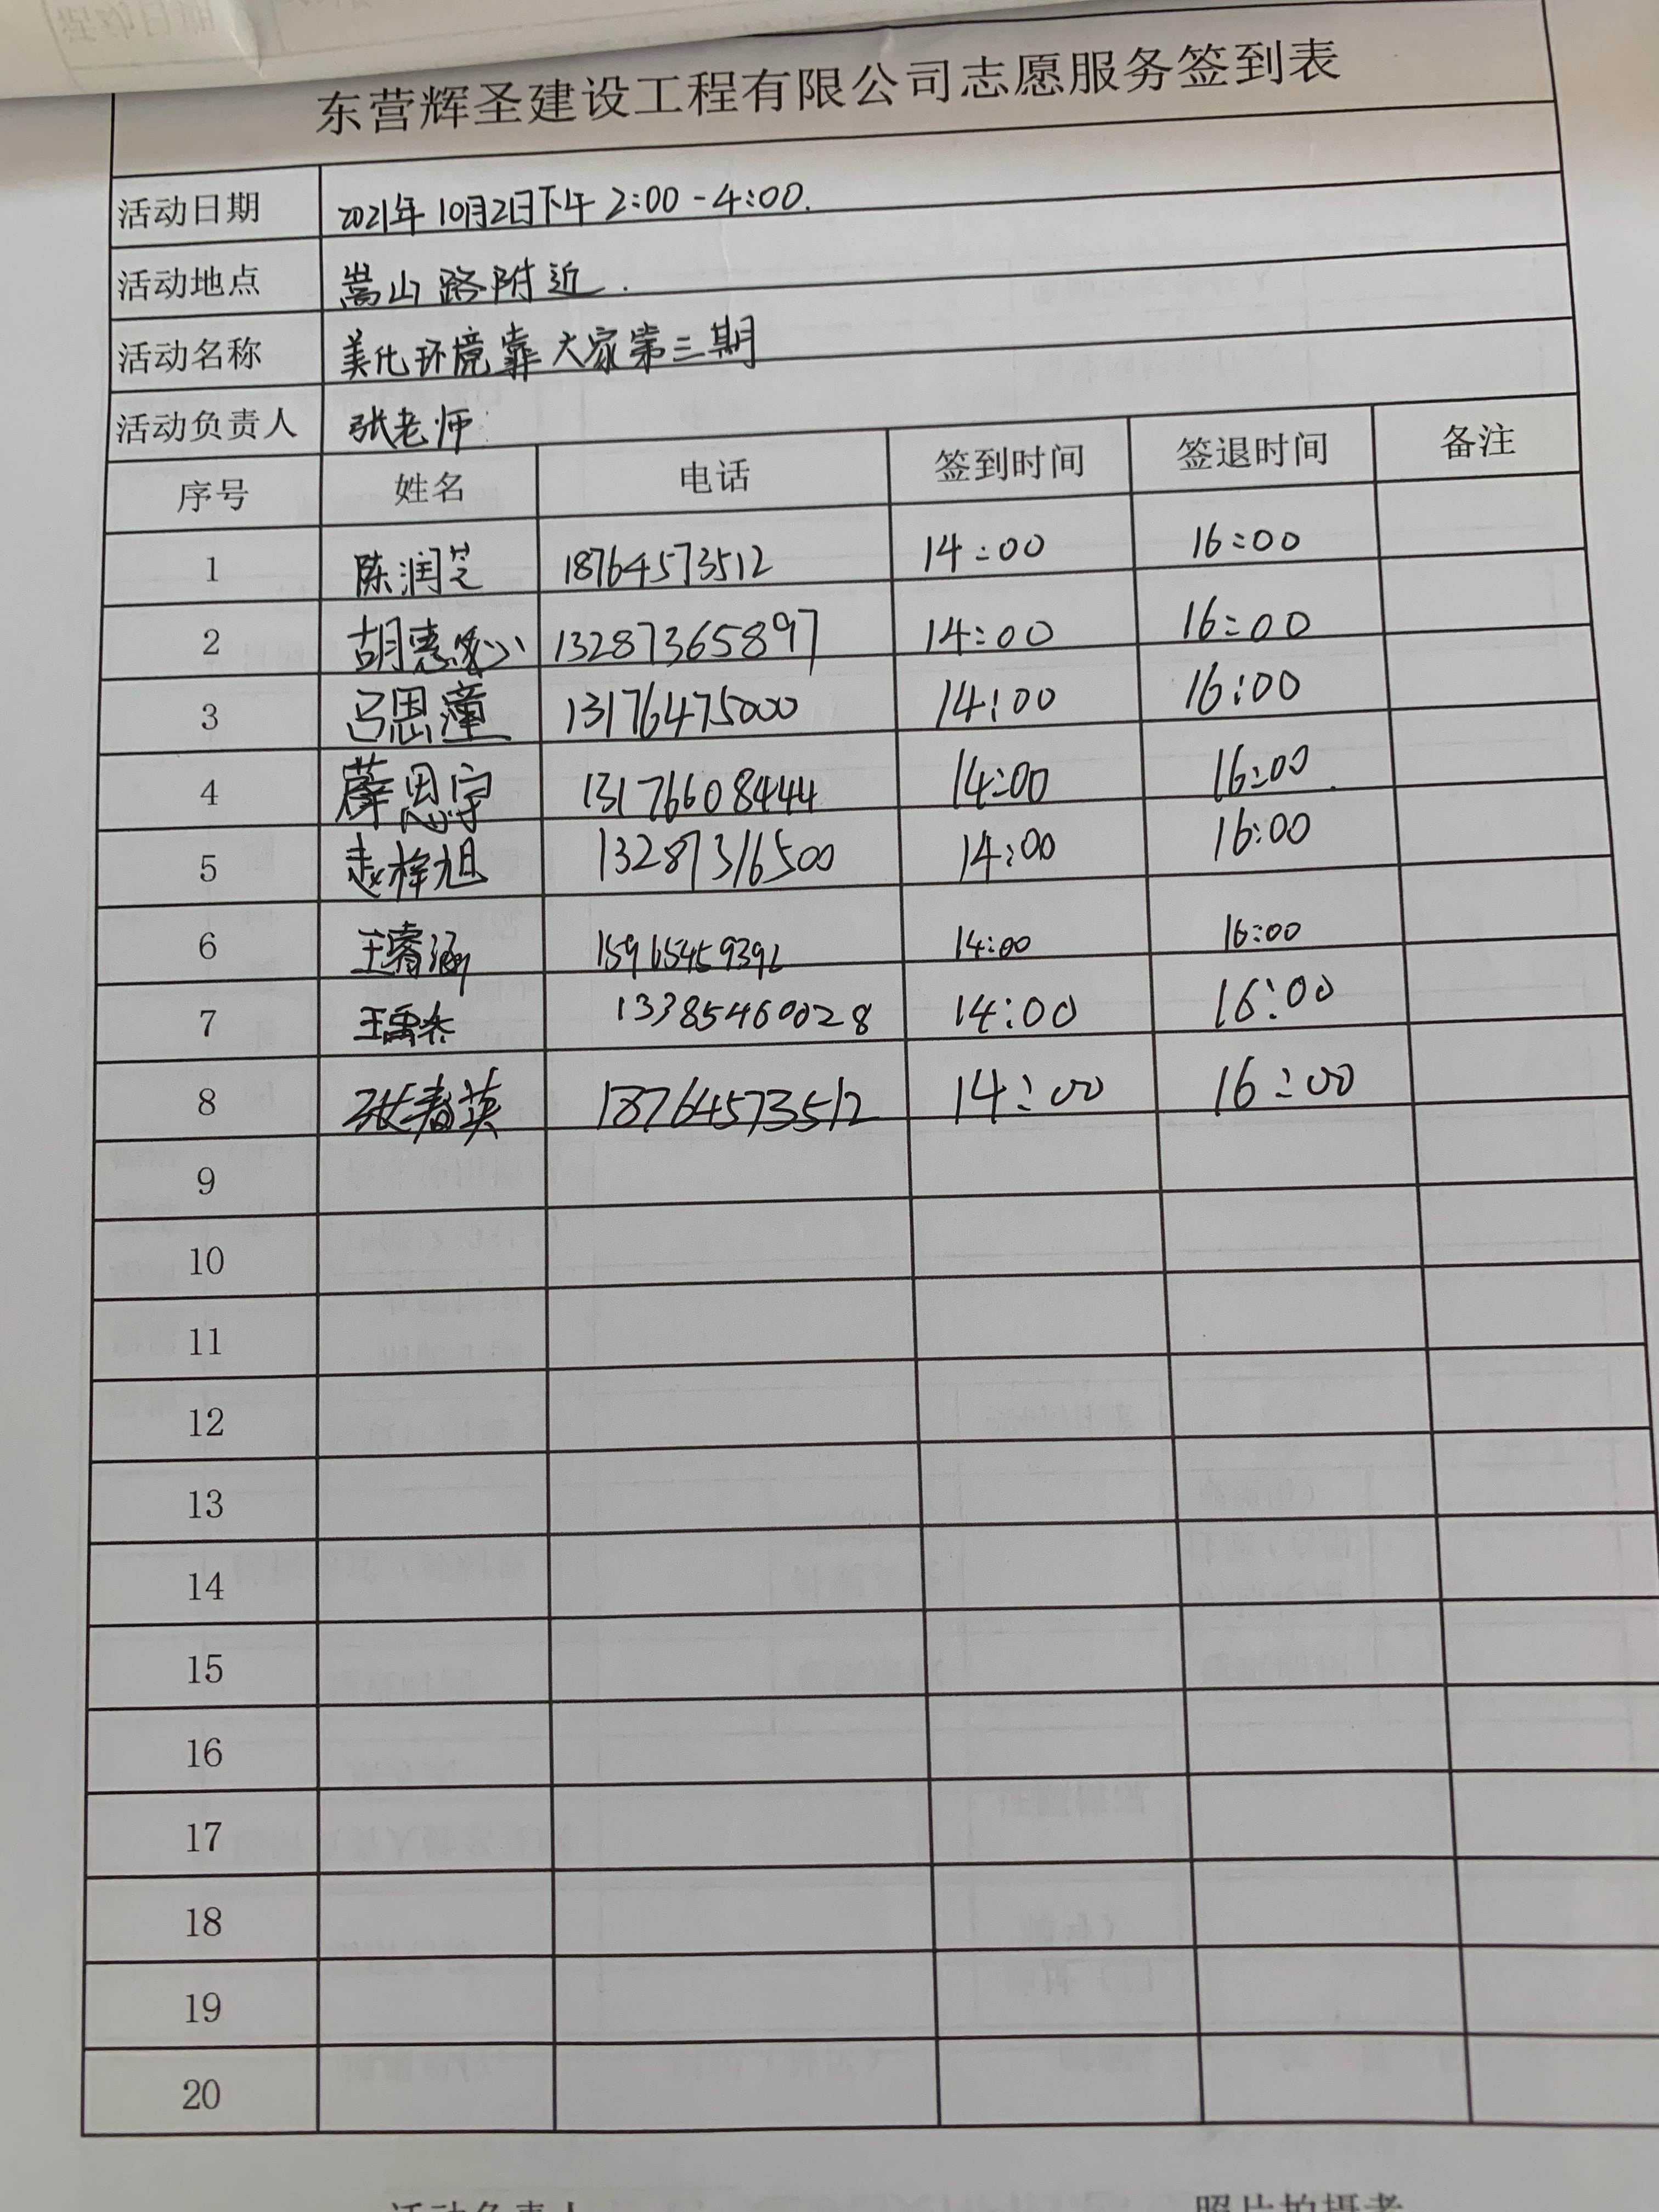 东营辉圣建设工程有限公司志愿服务签到表
活动日期 2021年10月2日下午 2:00-4:00.
活动地点 嵩山路附近.
活动名称 美化环境靠大家第三期
活动负责人 张老师
序号 姓名 电话 签到时间 签退时间 备注
1 陈润芝 18764573512 14:00 16:00
2 胡惠 13287365897 14:00 16:00
3 吕思潼 13176475000 14:00 16:00
4 薛思宇 13176608444 14:00 16:00
5 赵梓旭 13287316500 14:00 16:00
6 王睿涵 14:00 16:00
7 王禹杰 13385460028 14:00 16:00
8 张春英 18764573512 14:00 16:00
9
10
11
12
13
14
15
16
17
18
19
20
活动负责人 照片拍摄者